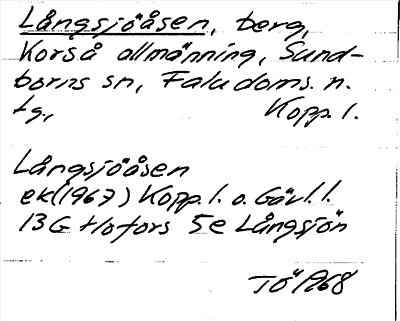 Långsjöåsen, berg,
Korså allmänning, Sund-
borns sn, Falu doms. n.
tg., Kopp. l.
Långsjöåsen
ek (1967) Kopp. l. o. Gävl. l.
13G Hofors 5e Långsjön
TÖ 1968